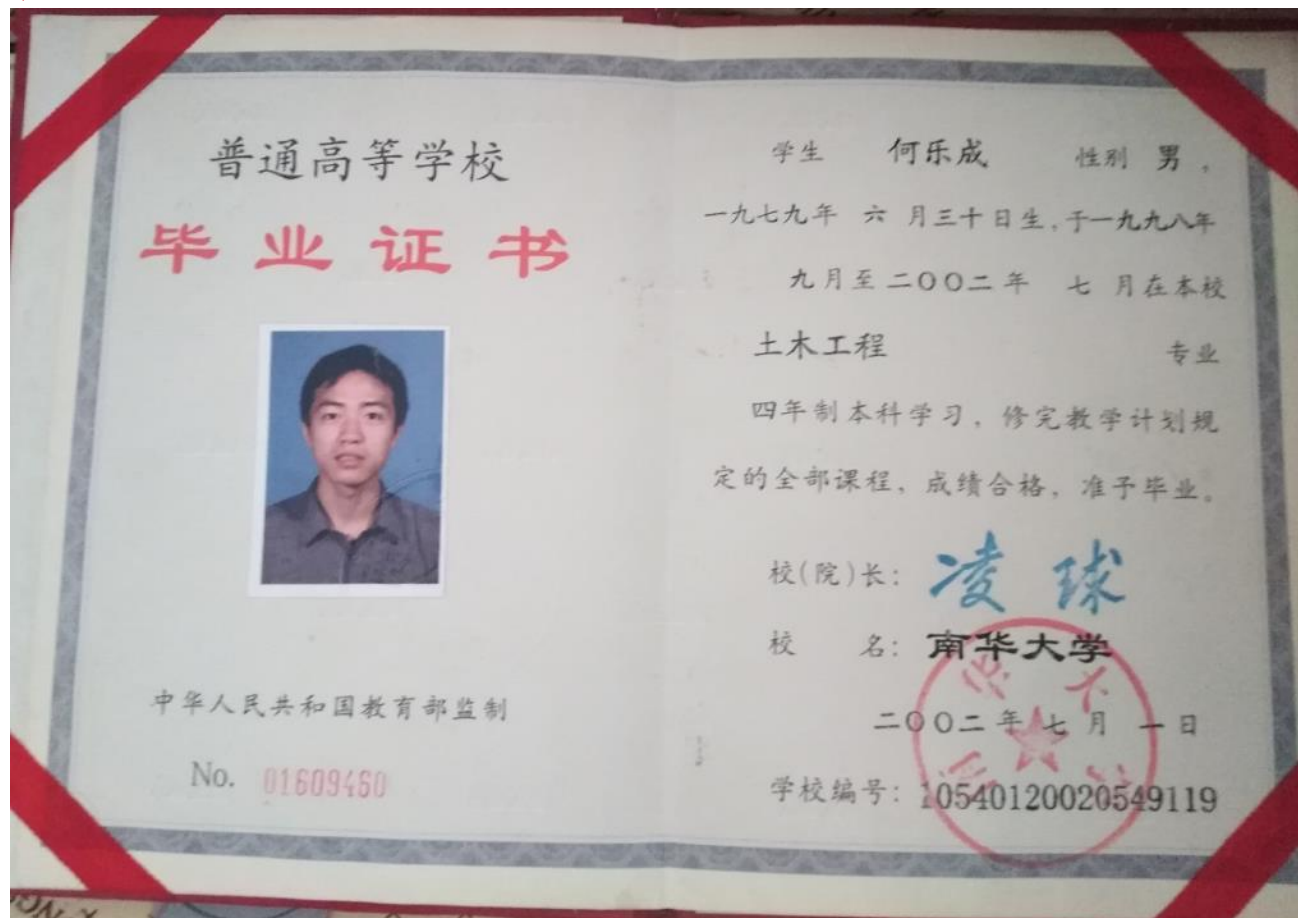 普通高等学校
毕业证书
中华人民共和国教育部监制
No. 01609460
学生 何乐成 性别 男，
一九七九年 六 月三十日生，于一九九八年
九月至二〇〇二年 七 月在本校
土木工程 专业
四年制本科学习，修完教学计划规
定的全部课程，成绩合格，准予毕业。
校(院)长：凌球
校 名：南华大学
二〇〇二年七月 一日
学校编号：10540120020549119